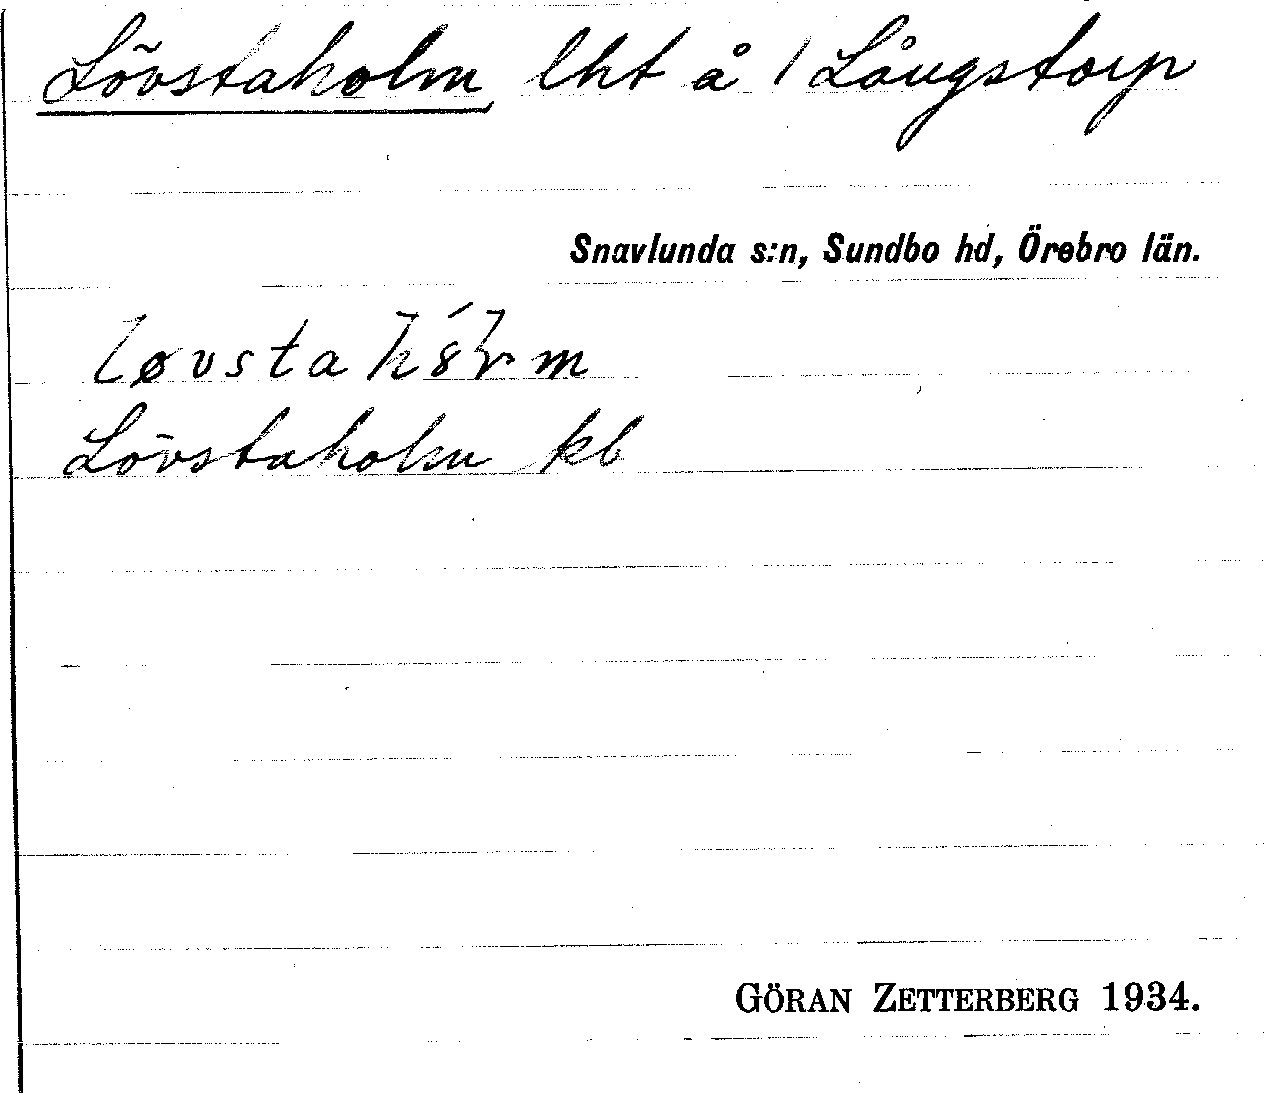 Lövstaholm lht å 1 Långstorp
Snavlunda s:n, Sundbo hd, Örebro län.
Lövstaholm kb
GÖRAN ZETTERBERG 1934.